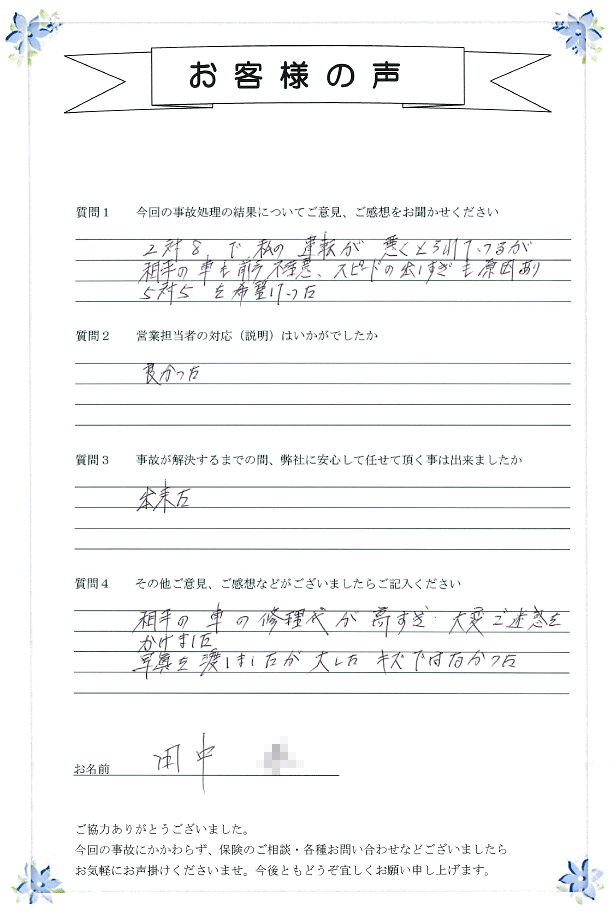 お客様の声
質問１ 今回の事故処理の結果についてご意見、ご感想をお聞かせください
2対8 で 私の 運転が 悪くとられているが
相手の車も前方不注意、スピードの出しすぎも原因あり
5対5 を希望していた
質問２ 営業担当者の対応（説明）はいかがでしたか
良かった
質問３ 事故が解決するまでの間、弊社に安心して任せて頂く事は出来ましたか
出来た
質問４ その他ご意見、ご感想などがございましたらご記入ください
相手の車の修理代が高すぎ 大変ご迷惑を
かけました
写真を渡しましたが大したキズではなかった
お名前 田中
ご協力ありがとうございました。
今回の事故にかかわらず、保険のご相談・各種お問い合わせなどございましたら
お気軽にお声掛けくださいませ。今後ともどうぞ宜しくお願い申し上げます。